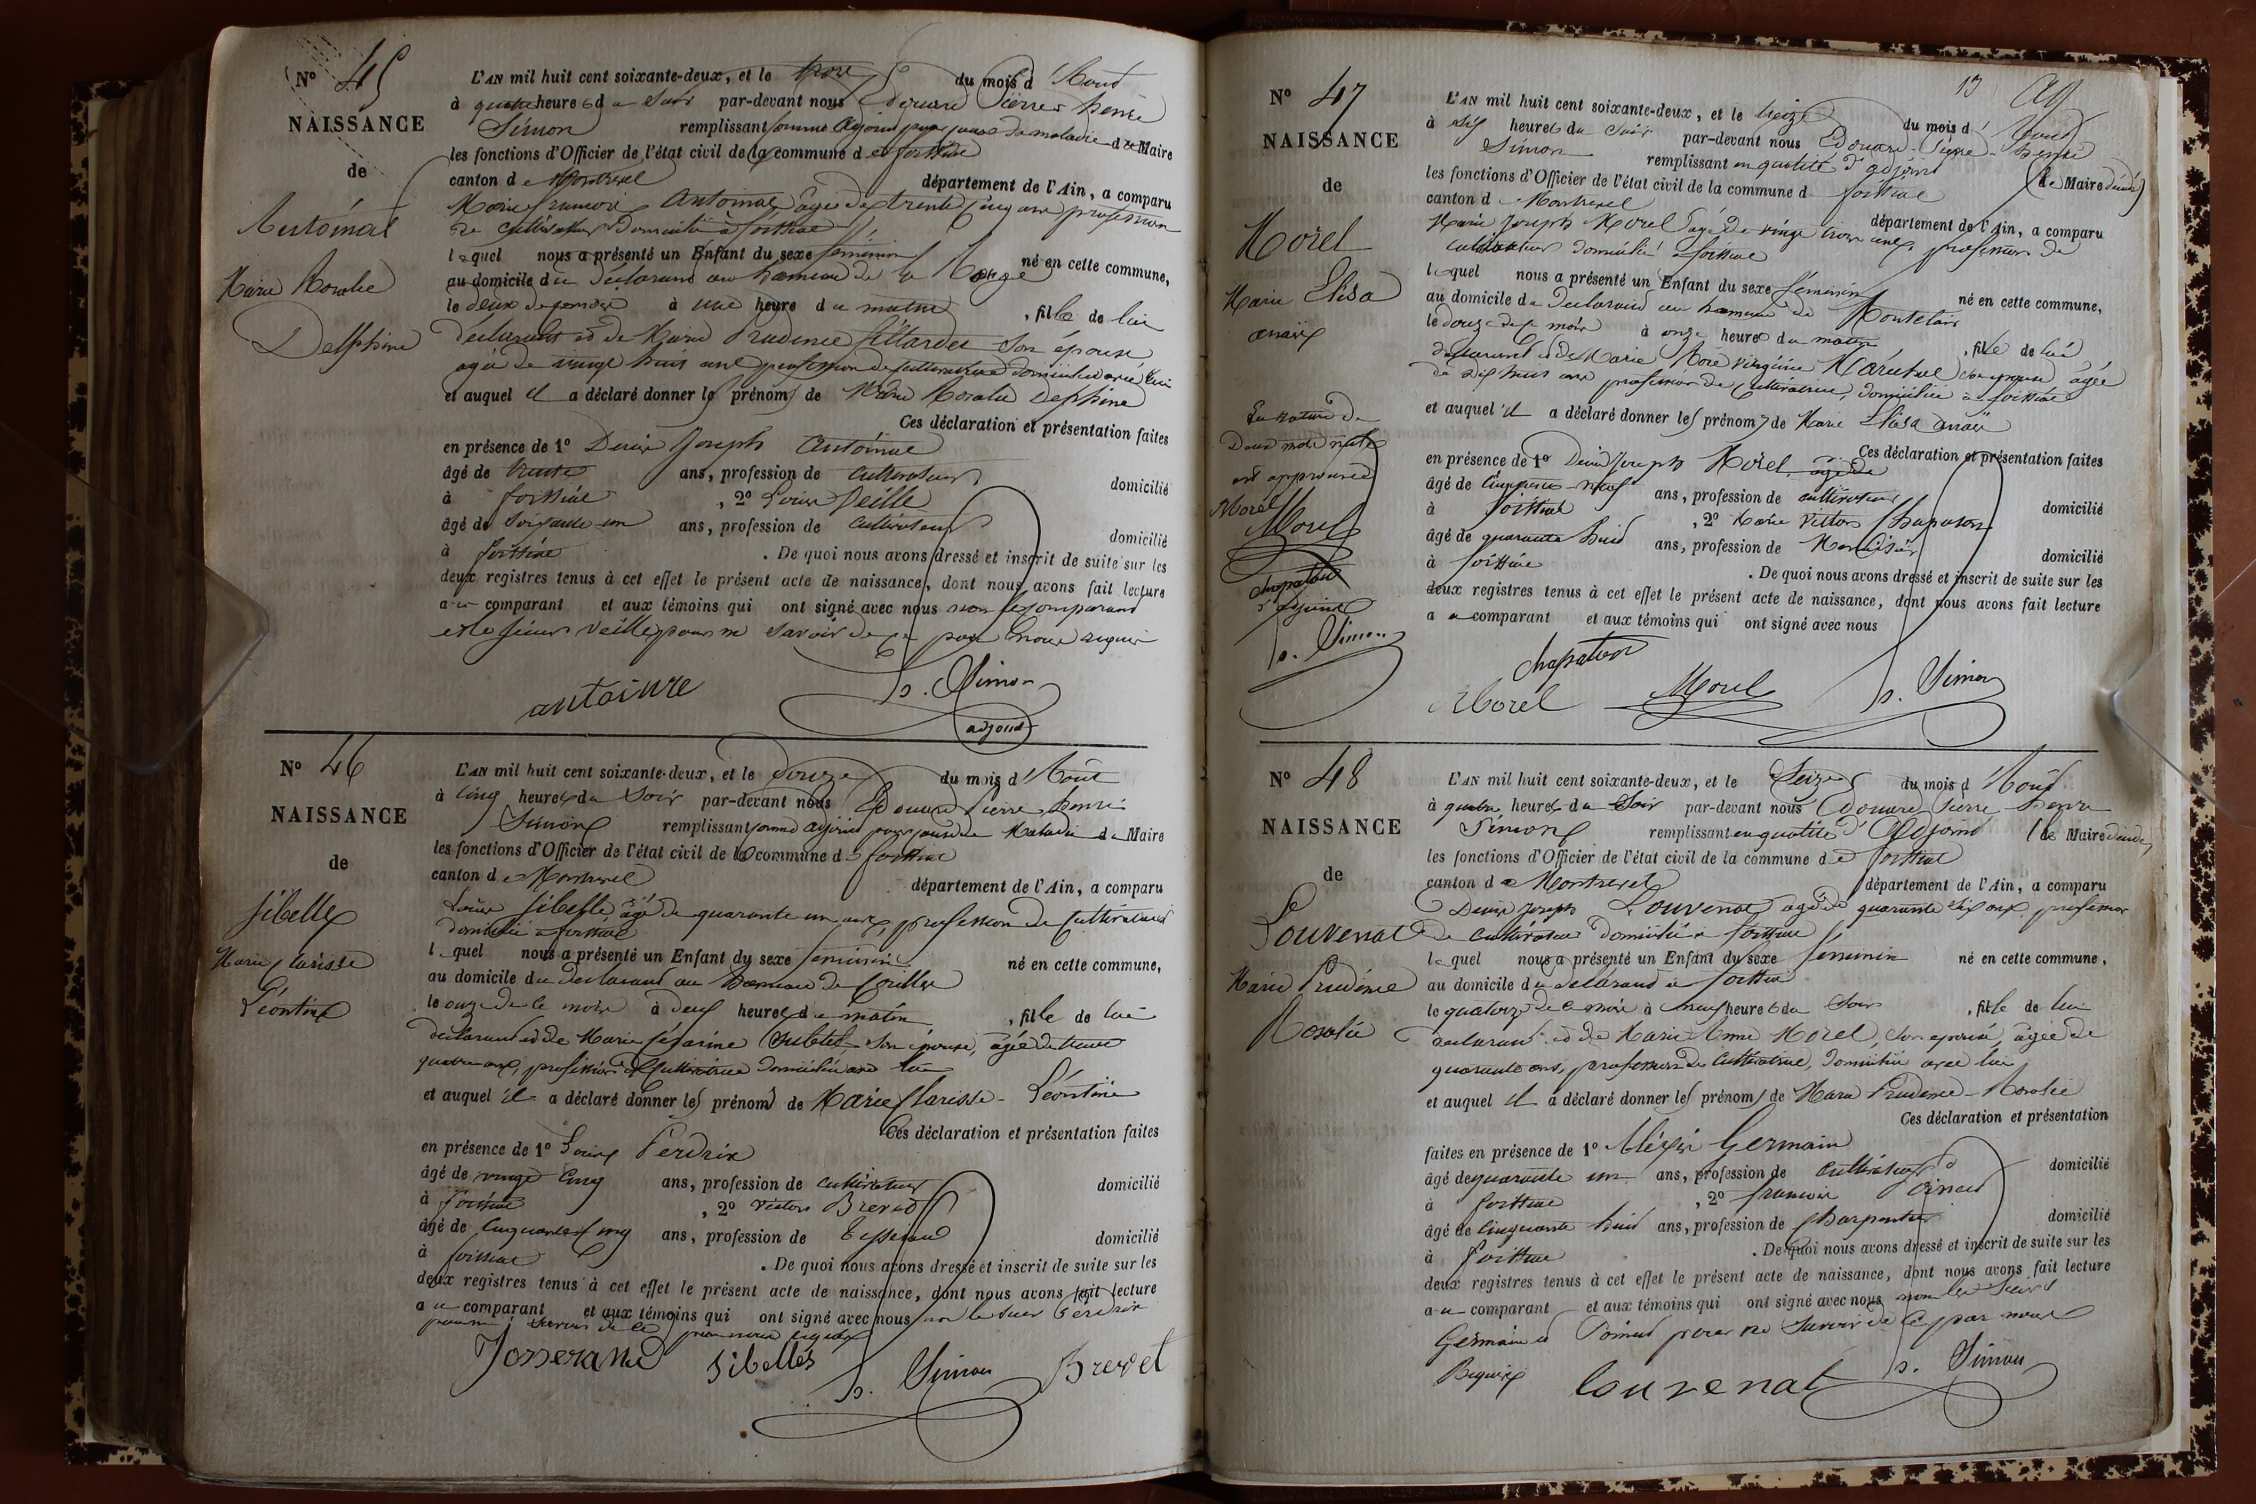 N° 45
NAISSANCE
de
Antoinat
Marie Rosalie
Delphine
L'AN mil huit cent soixante-deux, et le trois du mois d'Aout
à quatre heures du soir par-devant nous Edouard Pierre henri
Simon remplissant comme Adjoint pour cause de maladie du Maire
les fonctions d'Officier de l'état civil de la commune de foissiat
canton de Montrevel département de l'Ain, a comparu
Marie francois Antoinat âgé de trente cinq ans profession
de cultivateur domicilié à foissiat
lequel nous a présenté un Enfant du sexe féminin né en cette commune,
au domicile du déclarant au hameau de
le deux de ce mois à une heure du matin, fille de lui
declarant et de Marie Prudence son épouse
agée de vingt huit ans profession de cultivatrice domiciliée avec lui
et auquel il a déclaré donner les prénoms de Marie Rosalie Delphine
Ces déclaration et présentation faites
en présence de 1° Denis Joseph Antoinat
âgé de trente ans, profession de cultivateur domicilié
à foissiat, 2° Louis Veille
âgé de soixante un ans, profession de cultivateur domicilié
à foissiat. De quoi nous avons dressé et inscrit de suite sur les
deux registres tenus à cet effet le présent acte de naissance, dont nous avons fait lecture
au comparant et aux témoins qui ont signé avec nous non le comparant
et le sieur Veille pour ne savoir de ce par nous requis
antoinne
h. Simon
adjoint
N° 46
NAISSANCE
de
Sibelle
Marie Clarisse
Léontine
L'AN mil huit cent soixante-deux, et le douze du mois d'Aout
à cinq heures du soir par-devant nous Edouard Pierre henri
Simon remplissant comme adjoint pour cause de Maladie du Maire
les fonctions d'Officier de l'état civil de la commune de foissiat
canton de Montrevel département de l'Ain, a comparu
Louis Sibelle âgé de quarante un ans, profession de cultivateur
domicilié à foissiat
lequel nous a présenté un Enfant du sexe feminin né en cette commune,
au domicile du declarant au hameau de
le onze de ce mois à deux heures du matin, fille de lui
declarant et de Marie son épouse, âgée de trente
quatre ans, profession de cultivatrice domiciliée avec lui
et auquel il a déclaré donner les prénoms de Marie Clarisse Léontine
Ces déclaration et présentation faites
en présence de 1° Louis Perdrix
âgé de vingt cinq ans, profession de cultivateur domicilié
à foissiat, 2° Victor Brevet
âgé de cinquante cinq ans, profession de tisserand domicilié
à foissiat. De quoi nous avons dressé et inscrit de suite sur les
deux registres tenus à cet effet le présent acte de naissance, dont nous avons fait lecture
au comparant et aux témoins qui ont signé avec nous non le sieur Perdrix
pour ne savoir de ce par nous requis
Josserand Sibelles h. Simon Brevet
13
N° 47
NAISSANCE
de
Morel
Marie Elisa
anaïs
La rature de
Deux mots nuls
est approuvée
Morel
Morel
chapaton
l'adjoint
h. Simon
L'AN mil huit cent soixante-deux, et le treize du mois d'Aout
à six heures du soir par-devant nous Edouard Pierre henri
Simon remplissant en qualité d'adjoint (le Maire décédé)
les fonctions d'Officier de l'état civil de la commune de foissiat
canton de Montrevel département de l'Ain, a comparu
Marie Joseph Morel âgé de vingt trois ans, profession de
cultivateur domicilié à foissiat
lequel nous a présenté un Enfant du sexe féminin né en cette commune,
au domicile du declarant au hameau de
le douze de ce mois à onze heures du matin, fille de lui
declarant et de Marie Rose Virginie son epouse âgée
de dix huit ans profession de cultivatrice, domiciliée à foissiat
et auquel il a déclaré donner les prénoms de Marie Elisa anaïs
Ces déclaration et présentation faites
en présence de 1° Denis Joseph Morel
âgé de cinquante neuf ans, profession de cultivateur domicilié
à foissiat, 2° Marie Victor Chapaton
âgé de quarante huit ans, profession de Menuisier domicilié
à foissiat. De quoi nous avons dressé et inscrit de suite sur les
deux registres tenus à cet effet le présent acte de naissance, dont nous avons fait lecture
au comparant et aux témoins qui ont signé avec nous
chapaton
Morel Morel h. Simon
N° 48
NAISSANCE
de
Louvenat
Marie Prudence
Rosalie
L'AN mil huit cent soixante-deux, et le Seize du mois d'Aout
à quatre heures du soir par-devant nous Edouard Pierre henri
Simon remplissant en qualité d'Adjoint (le Maire décédé)
les fonctions d'Officier de l'état civil de la commune de foissiat
canton de Montrevel département de l'Ain, a comparu
Denis Joseph Louvenat âgé de quarante six ans profession
de cultivateur domicilié à foissiat
lequel nous a présenté un Enfant du sexe féminin né en cette commune,
au domicile du déclarant à foissiat
le quatorze de ce mois à neuf heures du soir, fille de lui
declarant et de Marie Anne Morel, son épouse, âgée de
quarante ans, profession de cultivatrice, domiciliée avec lui
et auquel il a déclaré donner les prénoms de Marie Prudence Rosalie
Ces déclaration et présentation
faites en présence de 1° Alexis Germain
âgé de quarante un ans, profession de cultivateur domicilié
à foissiat, 2° francois Poinud
âgé de cinquante huit ans, profession de Charpentier domicilié
à foissiat. De quoi nous avons dressé et inscrit de suite sur les
deux registres tenus à cet effet le présent acte de naissance, dont nous avons fait lecture
au comparant et aux témoins qui ont signé avec nous non les sieurs
Germain et Poinud pour ne savoir de ce par nous
Requis louvenat h. Simon